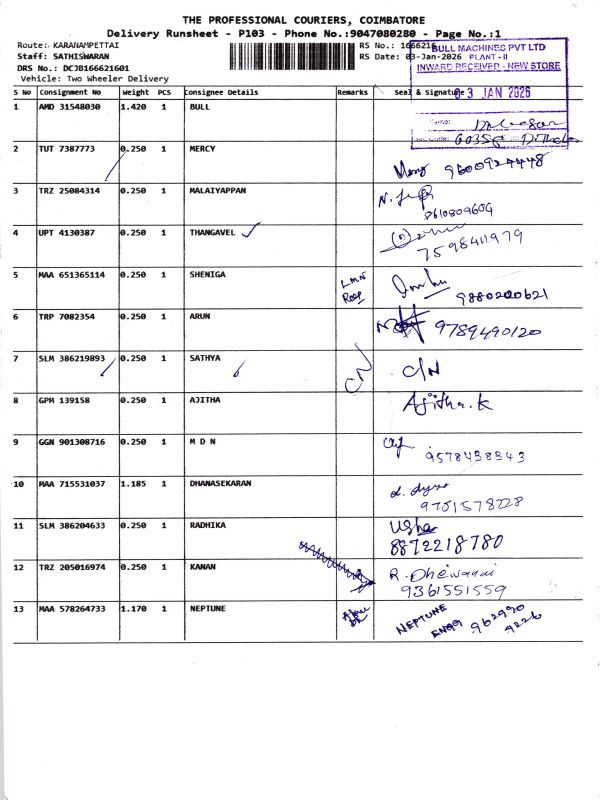 THE PROFESSIONAL COURIERS, COIMBATORE
Delivery Runsheet - P103 - Phone No.:9047080280 - Page No.:1
Route: KARANAMPETTAI
Staff: SATHISWARAN
DRS No.: DCJB166621601
Vehicle: Two Wheeler Delivery
RS No.: 1666216
RS Date: 03-Jan-2026
BULL MACHINES PVT LTD
PLANT - II
INWARD RECEIVED - NEW STORE
03 JAN 2026
S No Consignment No Weight PCS Consignee Details Remarks Seal & Signature
1 AMD 31548030 1.420 1 BULL
2 TUT 7387773 0.250 1 MERCY 9600924448
3 TRZ 25084314 0.250 1 MALAIYAPPAN 8610809609
4 UPT 4130387 0.250 1 THANGAVEL 7598411979
5 MAA 651365114 0.250 1 SHENIGA 9880200621
6 TRP 7082354 0.250 1 ARUN 9789490120
7 SLM 386219893 0.250 1 SATHYA C/N C/N
8 GPM 139158 0.250 1 AJITHA Ajitha.K
9 GGN 901308716 0.250 1 M D N 9578458543
10 MAA 715531037 1.185 1 DHANASEKARAN
11 SLM 386204633 0.250 1 RADHIKA Usha 8872218780
12 TRZ 205016974 0.250 1 KANAN 9361551559
13 MAA 578264733 1.170 1 NEPTUNE NEPTUNE ENGG